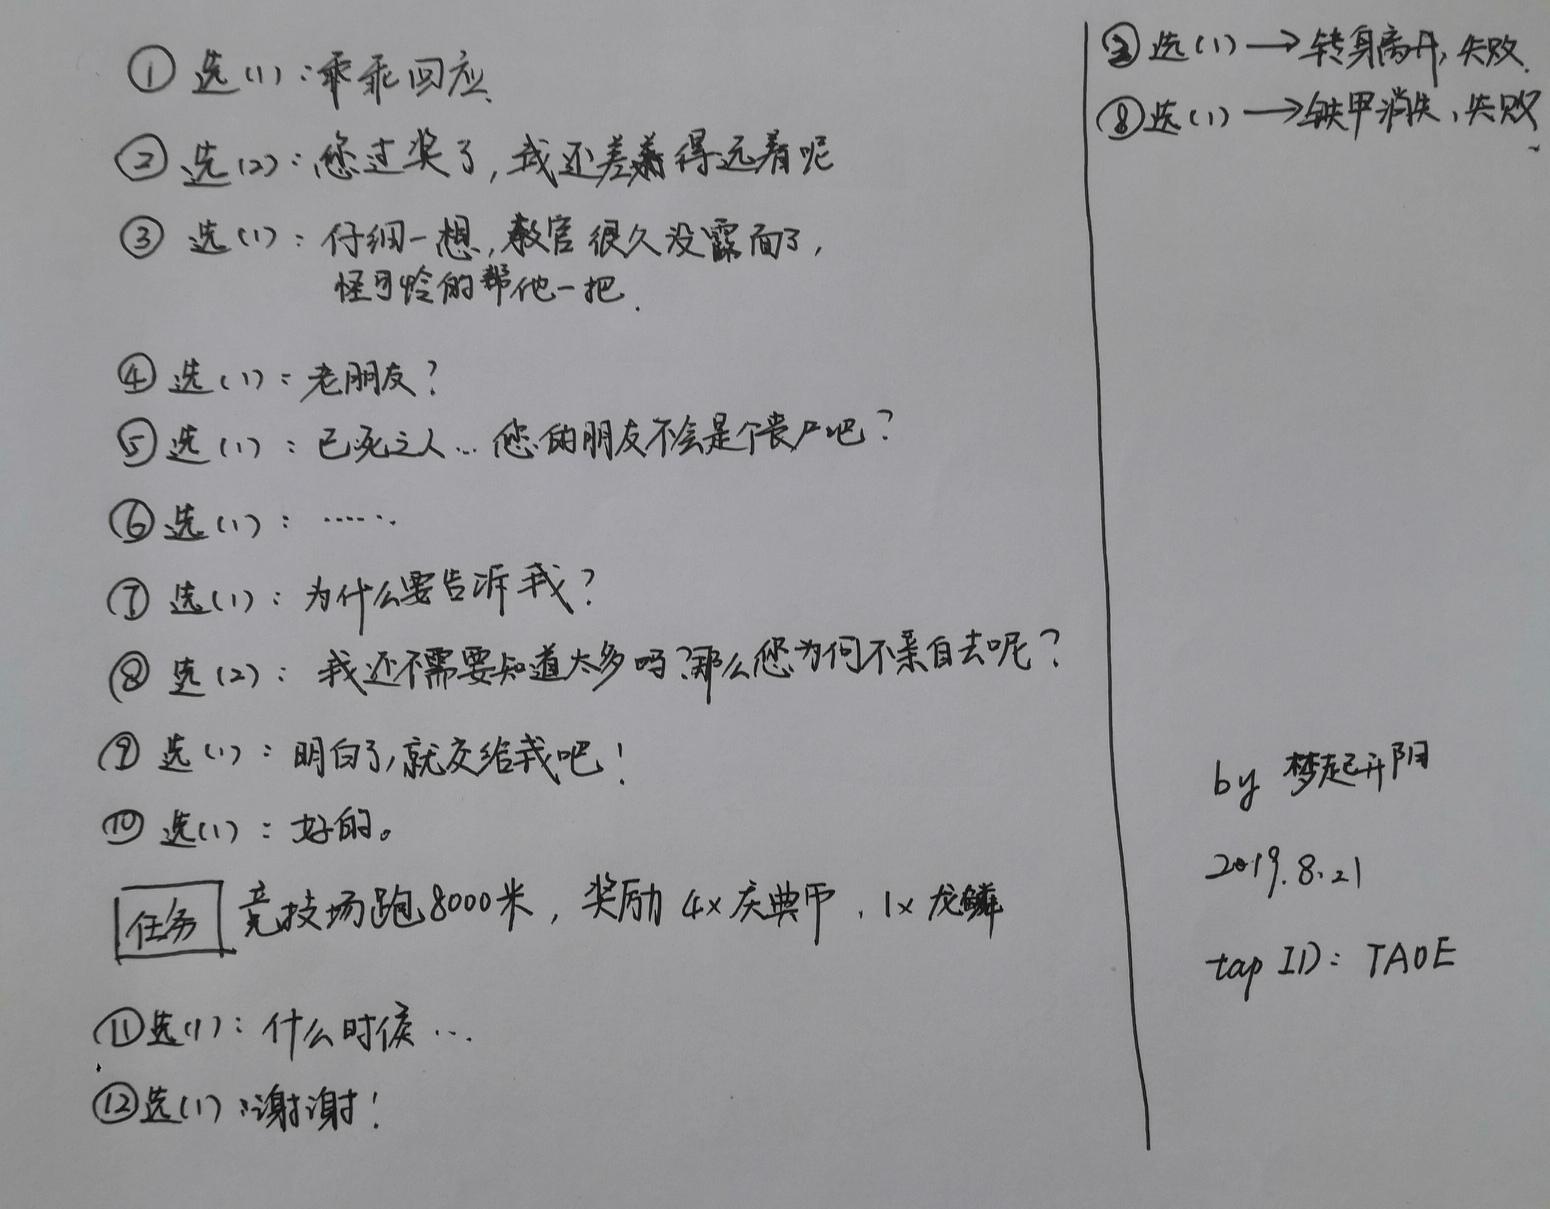 ① 选(1)：乖乖回应
② 选(2)：您过奖了，我还差得远着呢
③ 选(1)：仔细一想，教官很久没露面了，
怪可怜的帮他一把.
④ 选(1)：老朋友？
⑤ 选(1)：已死之人…您的朋友不会是个丧尸吧？
⑥ 选(1)：……
⑦ 选(1)：为什么要告诉我？
⑧ 选(2)：我还不需要知道太多吗？那么您为何不亲自去呢？
⑨ 选(1)：明白了，就交给我吧！
⑩ 选(1)：好的。
任务 竞技场跑8000米，奖励 4×庆典币，1×龙鳞
⑪选(1)：什么时候…
⑫选(1)：谢谢！
② 选(1)→转身离开，失败.
⑧选(1)→铁甲消失，失败
by 梦起开阳
2019.8.21
tap ID：TAOE